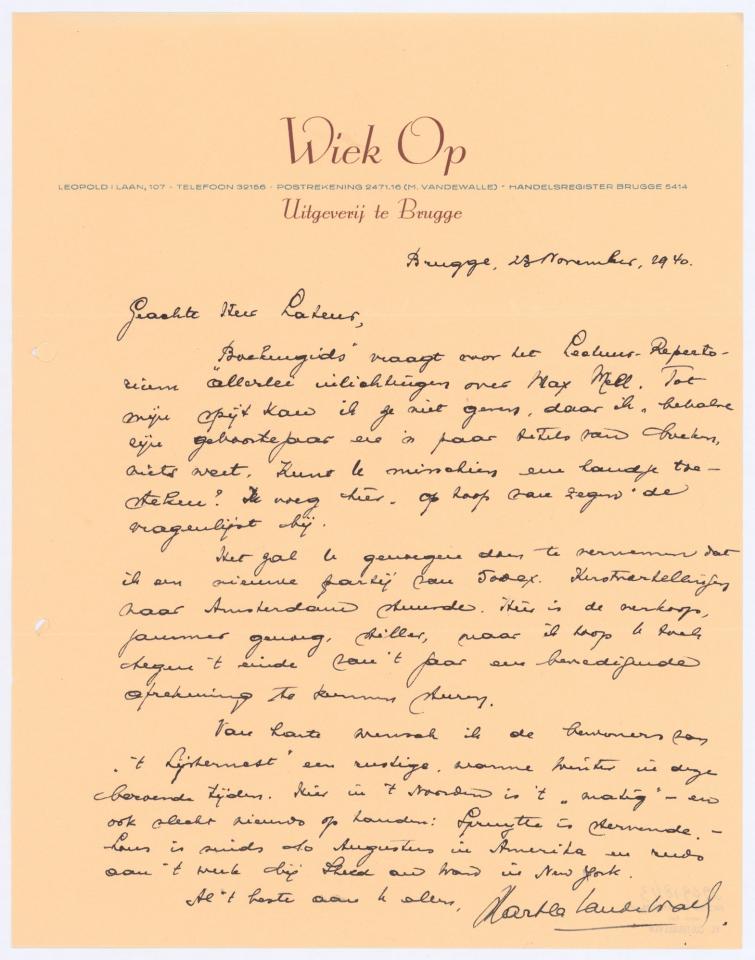 Wiek Op
LEOPOLD I LAAN, 107 - TELEFOON 32156 - POSTREKENING 2471.16 (M. VANDEWALLE) - HANDELSREGISTER BRUGGE 5414
Uitgeverij te Brugge
Brugge, 23 November, 1940.
Geachte Heer Lateur,
"Boekengids" vraagt voor het Lectuur-Reperto-
rium allerlei inlichtingen over Max Mell. Tot
mijn spijt kan ik ze niet geven, daar ik, behalve
zijn geboortejaar en 'n paar titels van boeken,
niets weet. Kunt U misschien een handje toe-
steken? Ik voeg hier, op hoop van zegen de
vragenlijst bij.
Het zal U genoegen doen te vernemen dat
ik een nieuwe partij van 500 ex. Kerstvertellingen
naar Amsterdam stuurde. Hier is de verkoop,
jammer genoeg, stiller, maar ik hoop U toch
tegen 't einde van 't jaar een bevredigende
afrekening te kunnen sturen.
Van harte wensch ik de bewoners van
"'t Lijsternest" een rustige, warme winter in deze
beroerde tijden. Hier in 't Noorden is 't "matig" - en
ook slecht nieuws op handen: Spruytte is stervende. -
is sinds Augustus in Amerika en reeds
aan 't werk bij Sheed and Ward in New York.
Al 't beste aan U allen,
Vandewalle